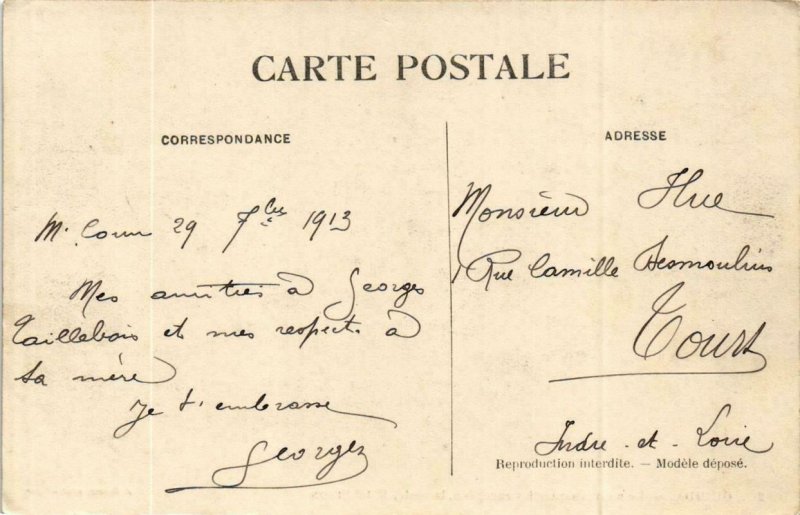 CARTE POSTALE
CORRESPONDANCE
29 7bre 1913
Mes amitiés à Georges
Taillebois et mes respects à
sa mère
Je t'embrasse
Georges
ADRESSE
Monsieur Hue
Rue Camille Desmoulins
Tours
Indre-et-Loire
Reproduction interdite. — Modèle déposé.